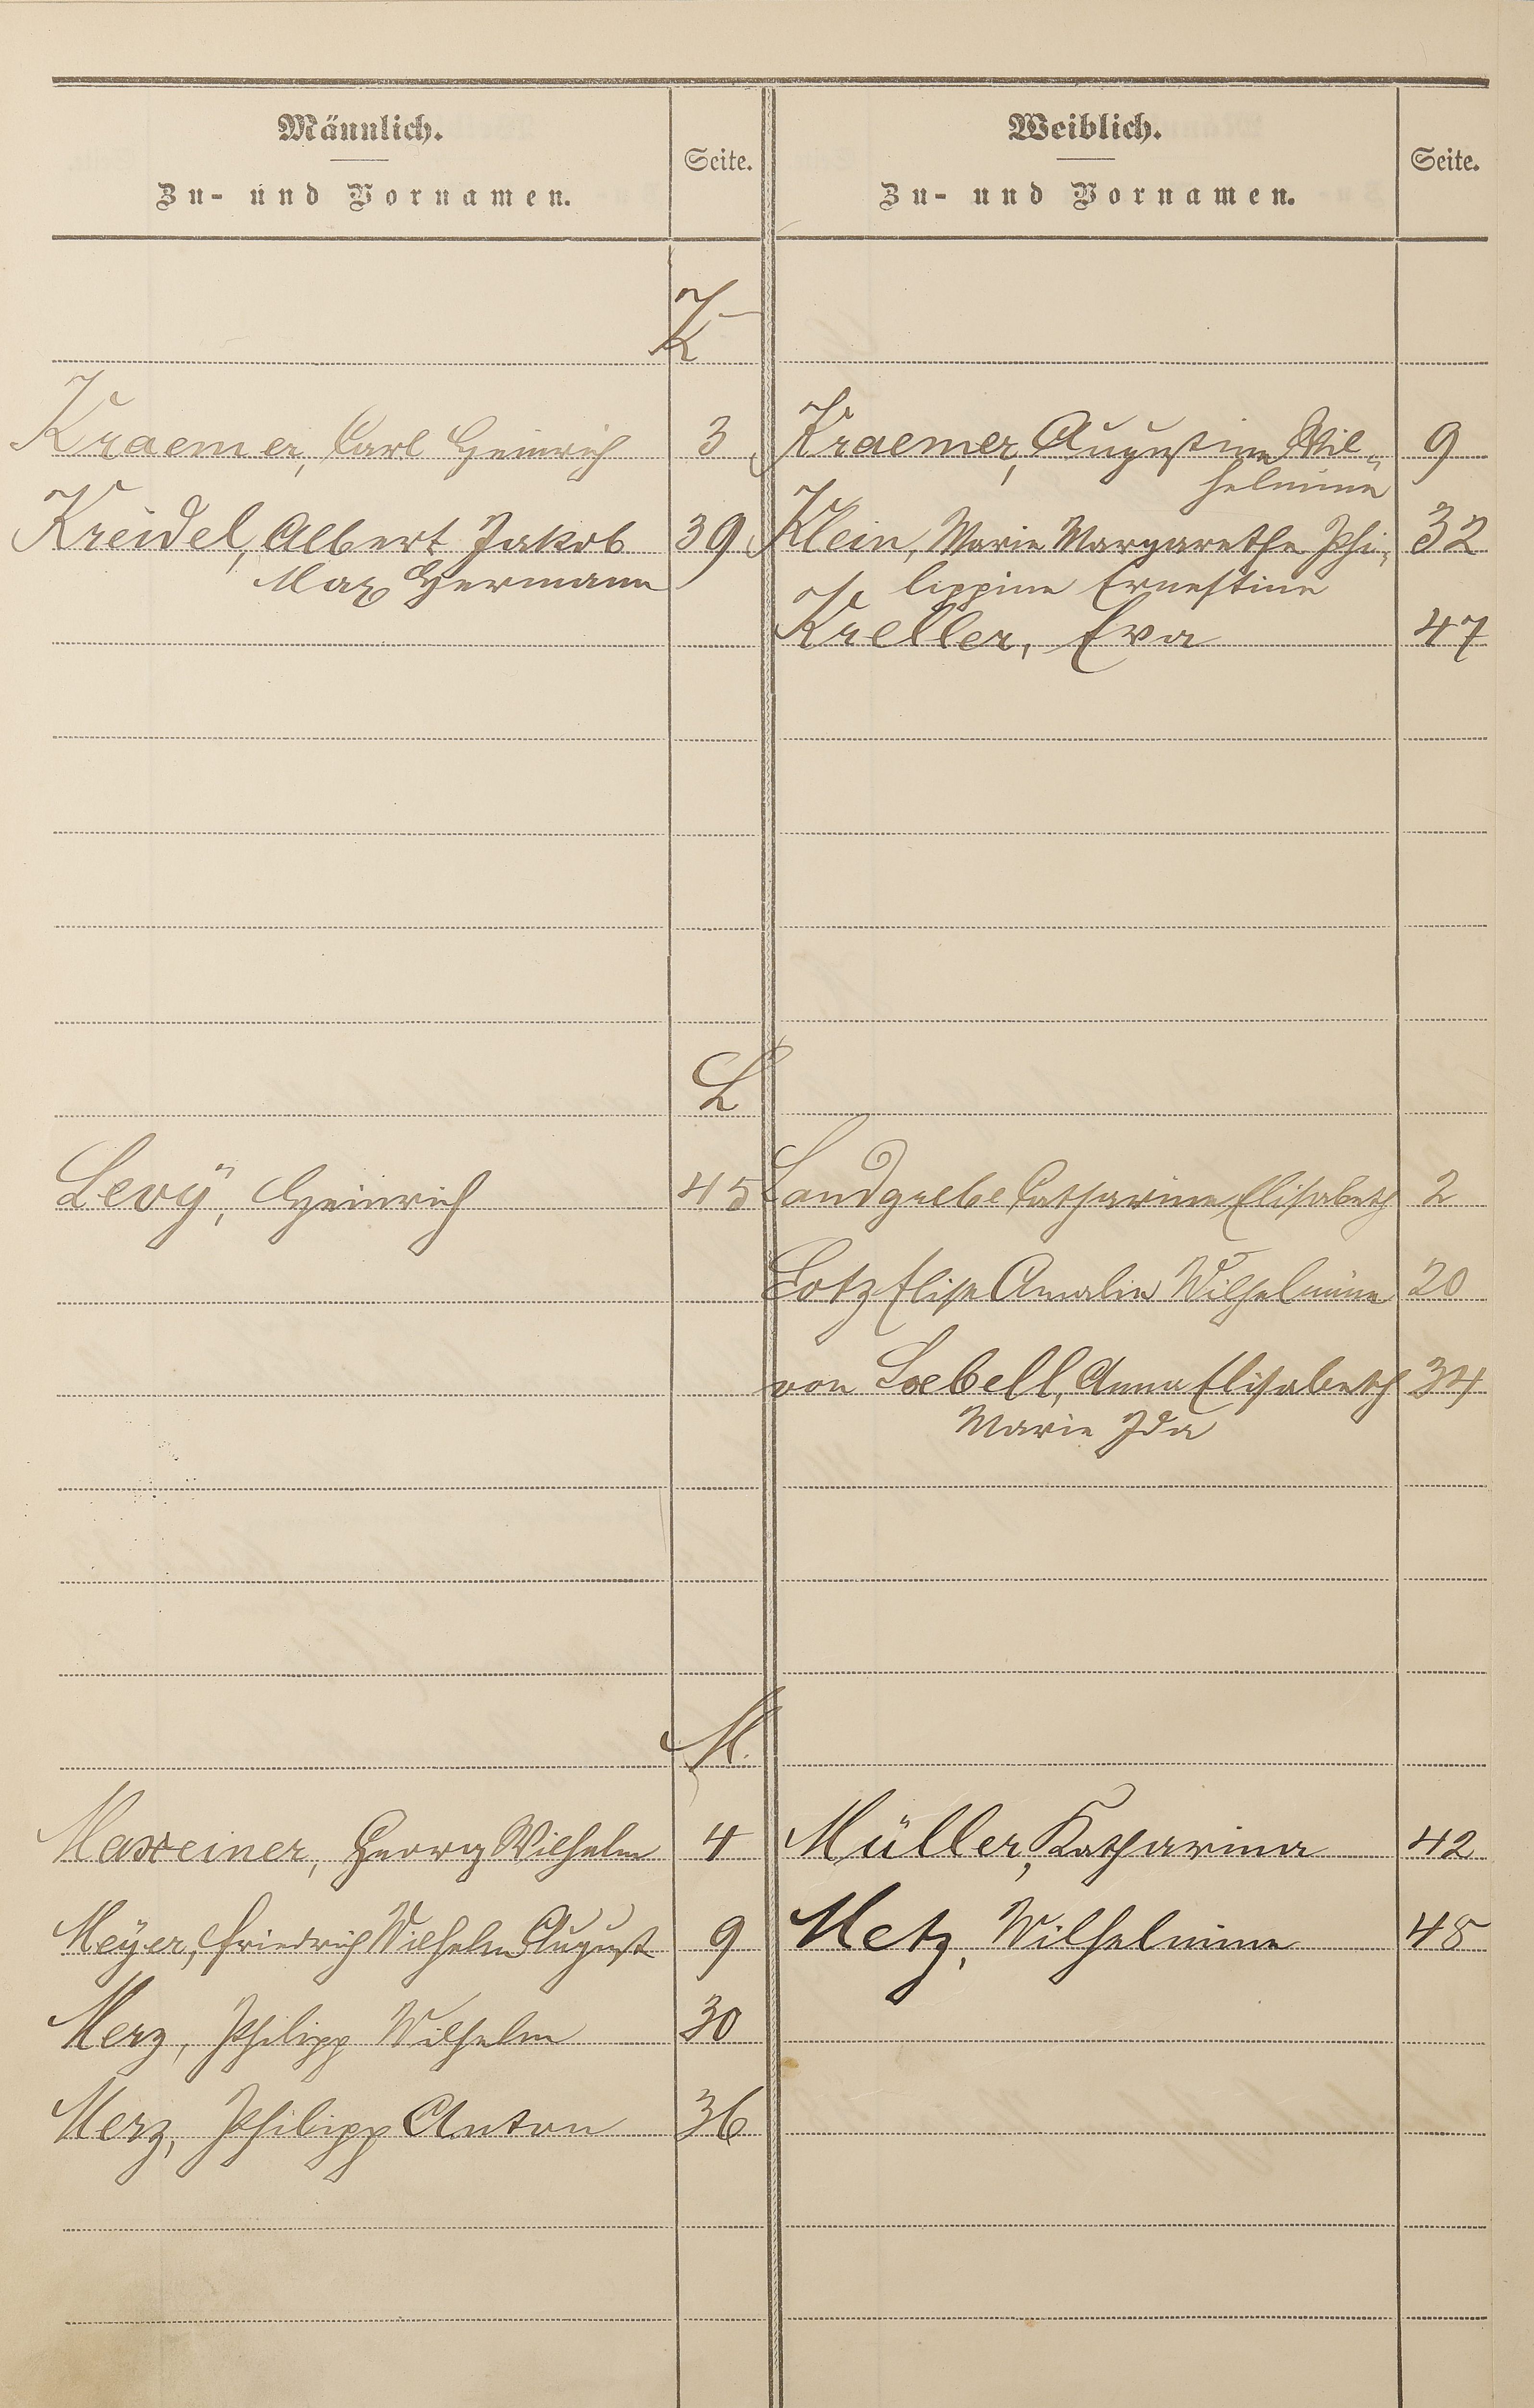 Männlich.
Zu- und Vornamen.
Seite.
Weiblich.
Zu- und Vornamen.
Seite.
K
Kraemer, Carl Heinrich 3 Kraemer, Augustine Wil- 9
helmine
Kreidel, Albert Jakob 39 Klein, Marie Margarethe Phi- 32
Max Hermann lippine Ernestine
Kreller, Eva 47
L
Levÿ, Heinrich 45 Landgrebe Catharine Elisabeth 2
Lotz Elise Amalie Wilhelmine 20
von Loebell, Anna Elisabeth 34
Marie Ida
M.
Maxeiner, Georg Wilhelm 4 Müller, Katharina 42
Meÿer, Friedrich Wilhelm August 9 Metz, Wilhelmine 48
Merz, Philipp Wilhelm 30
Merz, Philipp Anton 36